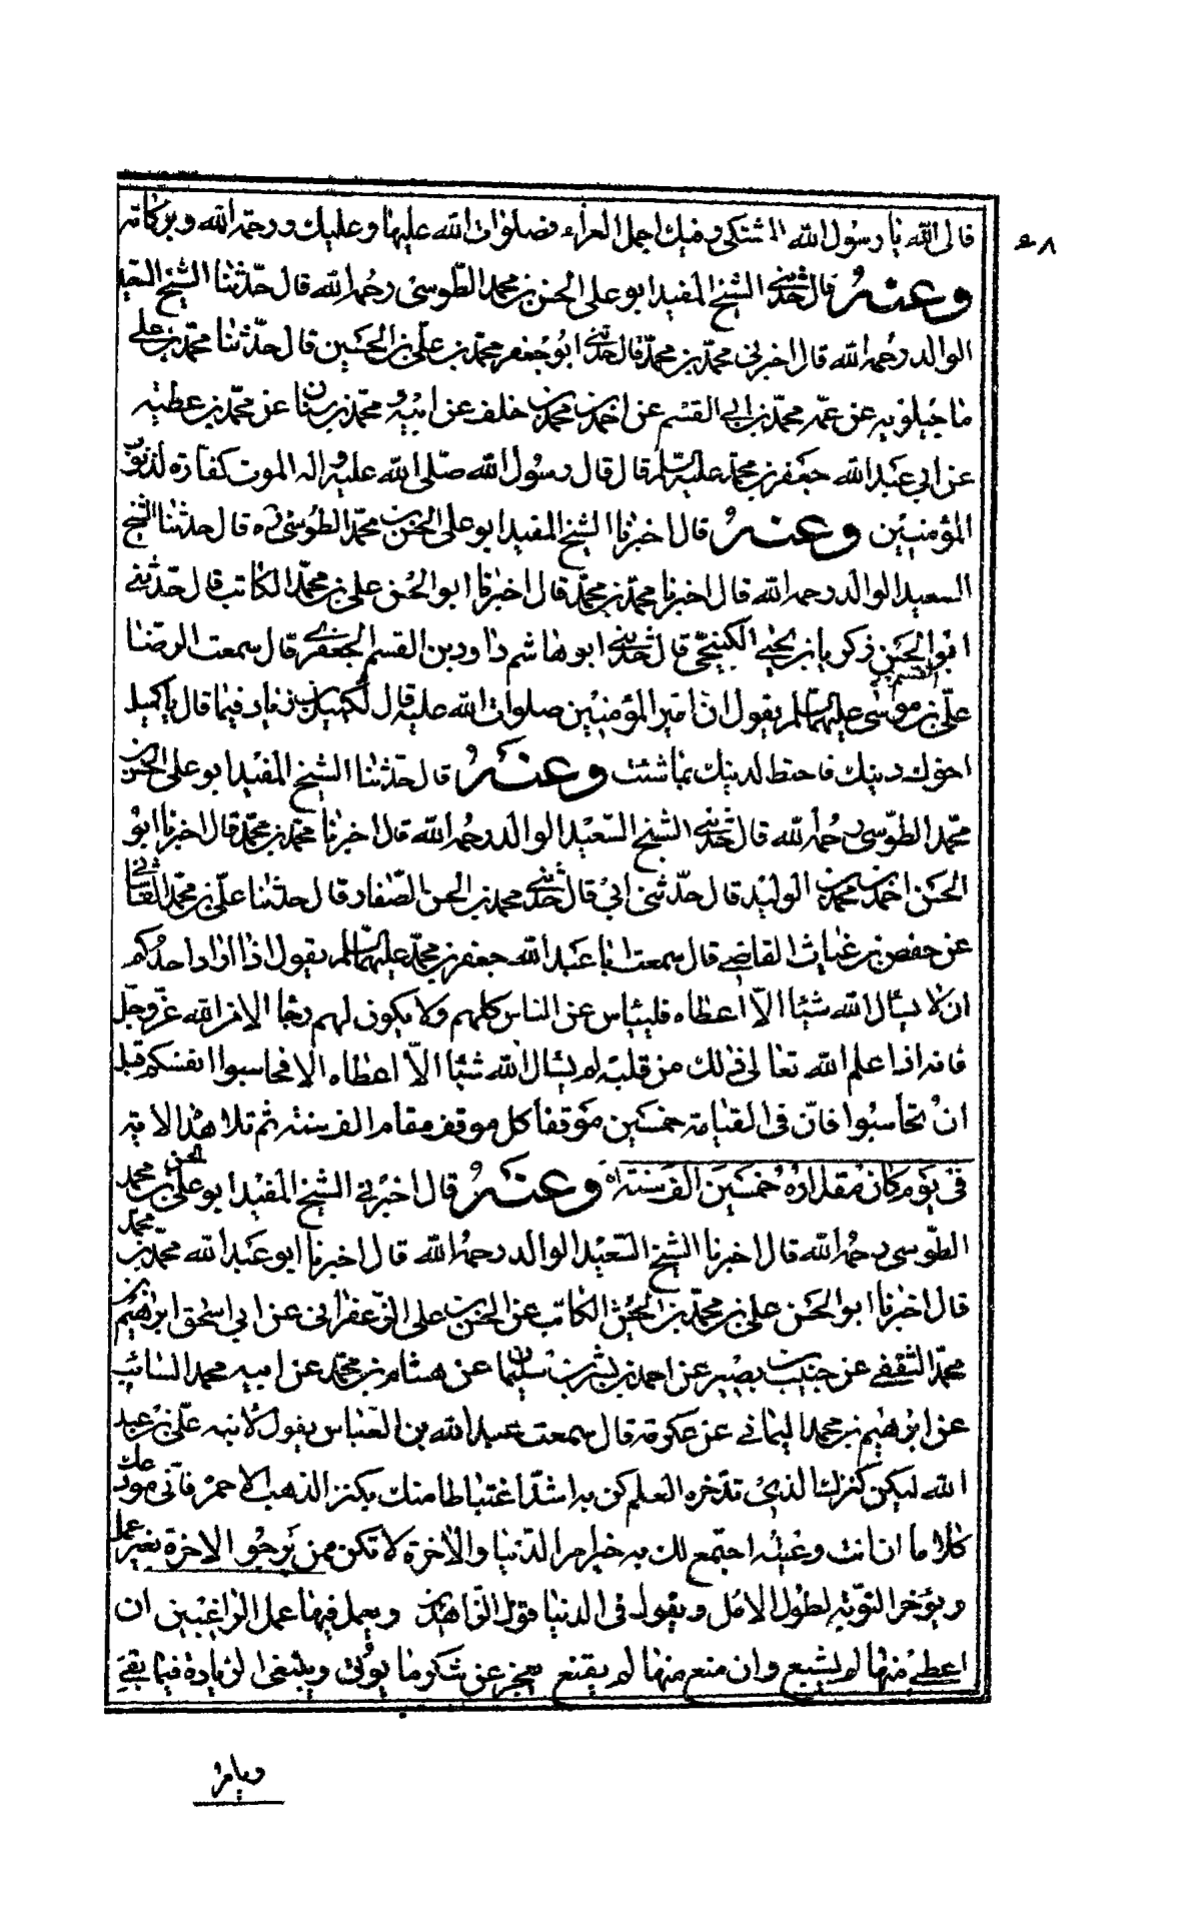 فالى الله يا رسول الله المشتكى وفيك اجمل العزاء فصلوات الله عليها وعليك ورحمة الله وبركاته
وعنه قال حدثني الشيخ المفيد ابو على الحسن بن محمد الطّوسى رحمه الله قال حدّثنا الشيخ السّعيد
الوالد رحمه الله قال اخبرنى محمّد بن محمّد قال حدثني ابو جعفر محمّد بن علّى بن الحسين قال حدّثنا محمّد بن على
ماجيلويه عن عمّه محمّد بن ابى القسم عن احمد بن محمد بن خلف عن ابيه و محمّد بن سنان عن محمّد بن عطيّه
عن ابي عبد الله جعفر بن محمّد عليه السّلم قال قال رسول الله صلّى الله عليه واله الموت كفارة لذنوب
المؤمنين وعنه قال اخبرنا الشيخ المفيد ابو على الحسن بن محمّد الطوسى ره قال حدثنا الشيخ
السعيد الوالد رحمه الله قال اخبرنا محمّد بن محمّد قال اخبرنا ابو الحسن على بن محمّد الكاتب قال حدّثنى
ابو القسم زكريا بن يحيى الكتنجي قال حدثنى ابو هاشم داود بن القسم الجعفرى قال سمعت الرضا
علّى بن موسى عليهما السّلم يقول ان امير المؤمنين صلوات الله عليه قال لكميل بن زياد فيما قال يا كميل
اخوك دينك فاحتط لدينك بما شئت وعنه قال حدّثنا الشيخ المفيد ابو على الحسن بن
محمّد الطّوسى رحمه الله قال حدثنى الشيخ السّعيد الوالد رحمه الله قال اخبرنا محمّد بن محمّد قال اخبرنا ابو
الحسن احمد بن محمد بن الوليد قال حدّثنى ابي قال حدثنى محمد بن الحسن الصّفار قال حدثنا علّى بن محمّد القاشانى
عن حفص بن غياث القاضى قال سمعت ابا عبد الله جعفر بن محمّد عليهما السّلم يقول اذا اراد احدكم
ان لا يسئل الله شيئا الّا اعطاه فليئاس عن الناس كلهم ولا يكون لهم رجا الا من الله عزّ وجّل
فانه اذا علم الله تعالى ذلك من قلبه لم يسئال الله شيئا الّا اعطاه الا فحاسبوا انفسكم قبل
ان تحاسبوا فانّ فى القيامة خمسين موقفا كل موقف مقام الف سنة ثم تلا هذه الاية
فى يوم كان مقداره خمسين الف سنة وعنه قال اخبرنى الشيخ المفيد ابو على الحسن بن محمد
الطّوسى رحمه الله قال اخبرنا الشيخ السّعيد الوالد رحمه الله قال اخبرنا ابو عبد الله محمّد بن محمد
قال اخبرنا ابو الحسن على بن محمّد بن الكاتب عن الحسن بن على الزعفرانى عن ابى اسحق ابراهيم بن
محمّد الثقفى عن بصير عن احمد بن بشر بن سليمان عن هشام بن محمّد عن ابيه محمد السائب
عن ابرهيم بن محمد اليمانى عن عكرمة قال سمعت عبد الله بن العباس يقول لابنه علّى بن عبد
الله ليكن كنزك الذى تدّخره العلم كن به اشدّ اغتباطا منك بكنز الذهب الاحمر فانّى مودعك
كلاما ان انت وعيته اجتمع لك به خير امر الدنيا والاخرة لا تكن ممن يرجو الاخرة بغير عمل
ويؤخر التوبة لطول الامل ويقول فى الدنيا قول الزاهدين ويعمل فيها عمل الراغبين ان
اعطى منها لم يشبع وان منع منها لم يقنع يعجز عن شكر ما يؤتى ويبتغى الزيادة فيما بقى
ويامر